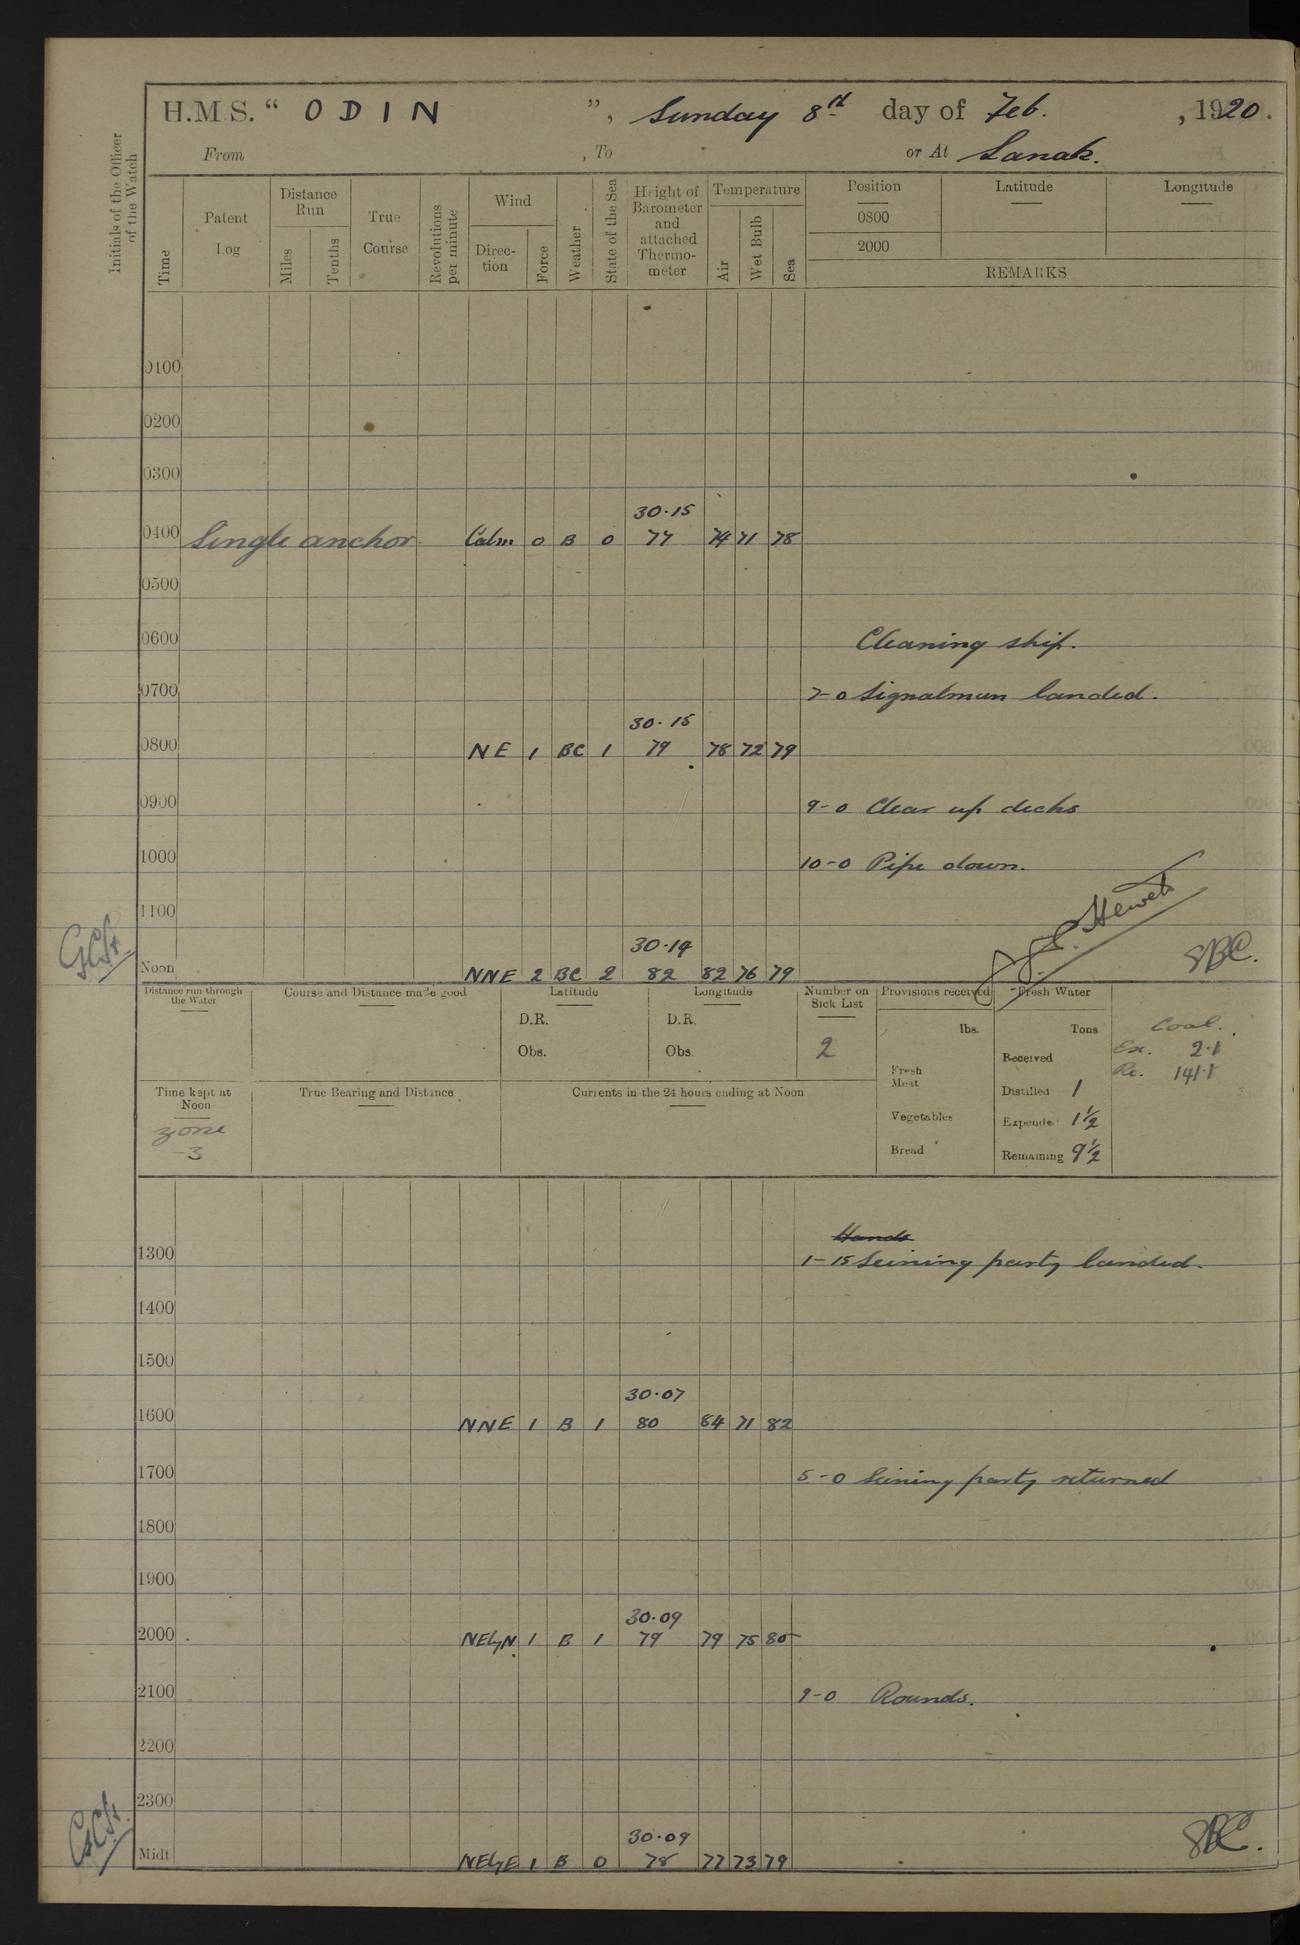 H.M.S. “ ODIN ”, Sunday 8th day of Feb. , 1920.
From , To or At Sanak.
Initials of the Officer of the Watch
Time
Patent Log
Distance Run
Miles
Tenths
True Course
Revolutions per minute
Wind
Direc-tion
Force
Weather
State of the Sea
Height of Barometer and attached Thermo-meter
Temperature
Air
Wet Bulb
Sea
Position Latitude Longitude
0800
2000
REMARKS
0100
0200
0300
30.15
0400 Single anchor Calm 0 B 0 77 74 71 78
0500
0600 Cleaning ship.
0700 7-0 Signalman landed.
30.15
0800 NE 1 BC 1 79 78 72 79
0900 9-0 Clear up decks
1000 10-0 Pipe down.
1100
30.14
Noon NNE 2 BC 2 82 82 76 79
Distance run through the Water
Course and Distance made good
Latitude
D.R.
Obs.
Longitude
D.R.
Obs.
Number on Sick List
2
Provisions received
lbs.
Fresh Meat
Vegetables
Bread
Fresh Water
Tons
Received
Distilled 1
Expended 1½
Remaining 9½
Coal.
Ex. 2.1
Re. 141.1
Time kept at Noon
zone -3
True Bearing and Distance
Currents in the 24 hours ending at Noon
Hands
1300 1-15 Seining party landed.
1400
1500
30.07
1600 NNE 1 B 1 80 84 71 82
1700 5-0 Seining party returned
1800
1900
30.09
2000 NEbyN 1 B 1 79 79 75 80
2100 9-0 Rounds.
2200
2300
30.09
Midt NEbyE 1 B 0 78 77 73 79